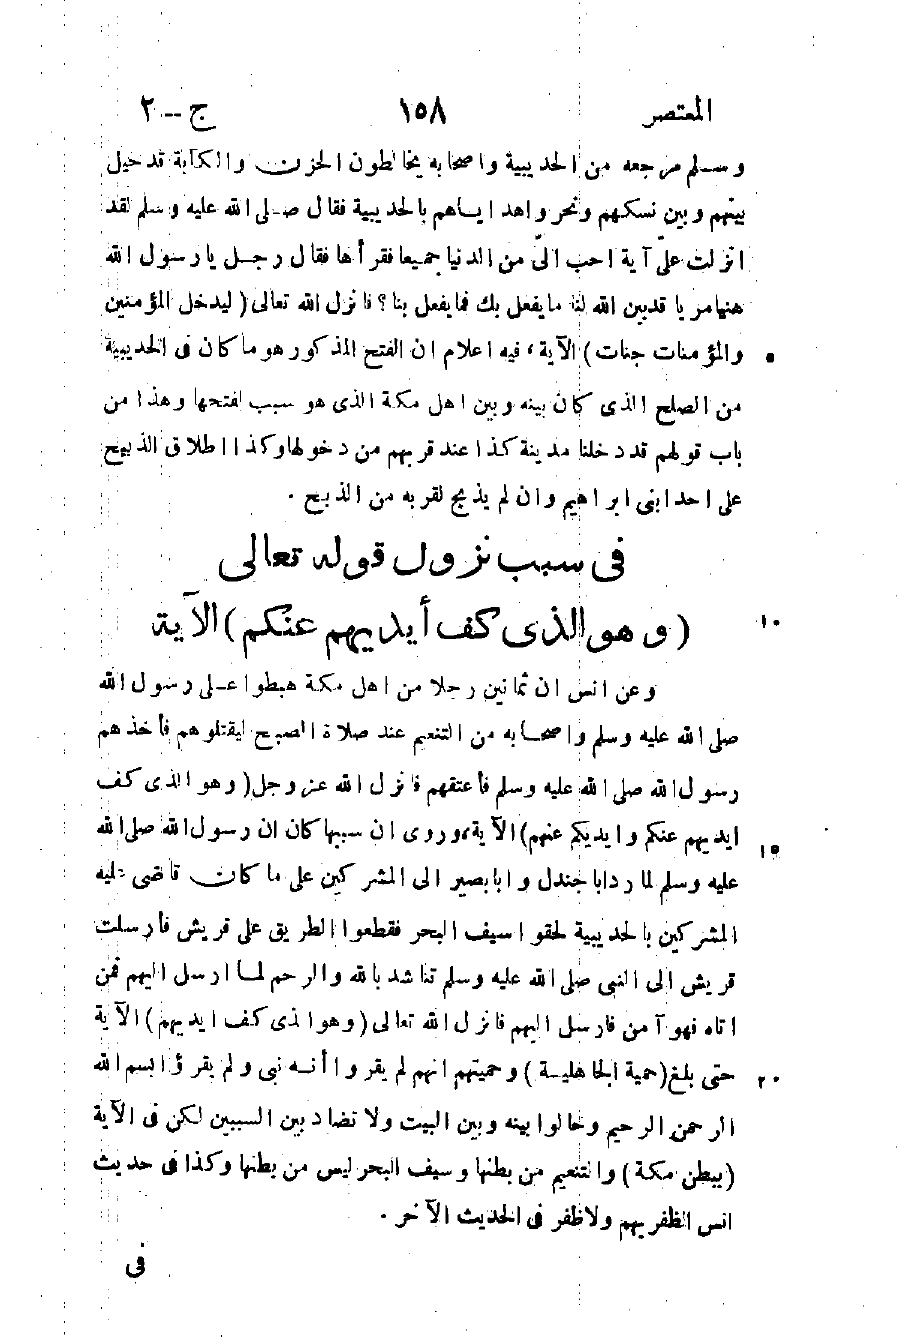 المعتصر ١٥٨ ج--٢
وسلم مرجعه من الحديبية واصحابه يخالطون الحزن والكآبة قد حيل
بينهم وبين نسكهم ونحروا هداياهم بالحديبية فقال صلى الله عليه وسلم لقد
انزلت علىّ آية احب الىّ من الدنيا جميعا فقرأها فقال رجل يا رسول الله
هنيأ مريا قد بين الله لنا ما يفعل بك فما يفعل بنا؟ فانزل الله تعالى (ليدخل المؤمنين
والمؤمنات جنات) الآية، فيه اعلام ان الفتح المذكور هو ما كان فى الحديبية ٥
من الصلح الذى كان بينه وبين اهل مكة الذى هو سبب لفتحها وهذا من
باب قولهم قد دخلنا مدينة كذا عند قربهم من دخولها وكذا اطلاق الذبيح
على احد ابنى ابراهيم وان لم يذبح لقربه من الذبح .
فى سبب نزول قوله تعالى
(وهو الذى كف أيديهم عنكم) الآية ١٠
وعن انس ان ثمانين رجلا من اهل مكة هبطوا على رسول الله
صلى الله عليه وسلم واصحابه من التنعيم عند صلاة الصبح ليقتلوهم فأخذهم
رسول الله صلى الله عليه وسلم فأعتقهم فانزل الله عز وجل (وهو الذى كف
ايديهم عنكم وايديكم عنهم) الآية، وروى ان سببها كان ان رسول الله صلى الله ١٥
عليه وسلم لما رد ابا جندل وابا بصير الى المشركين على ما كان قاضى عليه
المشركين بالحديبية لحقوا سيف البحر فقطعوا الطريق على قريش فأرسلت
قريش الى النبى صلى الله عليه وسلم تناشد بالله والرحم لما ارسل اليهم فمن
اتاه فهو آمن فارسل اليهم فانزل الله تعالى (وهو الذى كف ايديهم) الآية
حتى بلغ (حمية الجاهلية) وحميتهم انهم لم يقروا أنه نبى ولم يقرؤا بسم الله ٢٠
الرحمن الرحيم وحالوا بينه وبين البيت ولا تضاد بين السببين لكن فى الآية
(ببطن مكة) والتنعيم من بطنها وسيف البحر ليس من بطنها وكذا فى حديث
انس الظفر بهم ولا ظفر فى الحديث الآخر .
فى